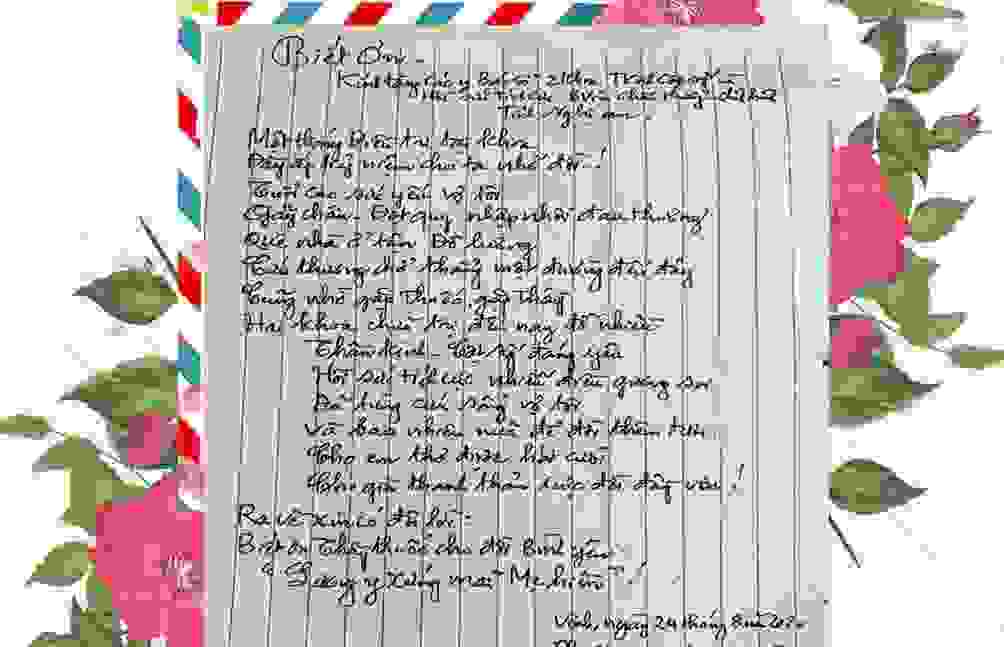 Biết ơn -
Kính tặng các y Bác sĩ 2 khoa Thần Kinh
Hồi sức tích cực BV
Tỉnh Nghệ an.
Một tháng Điều trị hai khoa
Đầy ắp kỷ niệm cho ta nhớ đời !
Tuổi cao sức yếu vợ tôi
Gãy chân - Đột quỵ nhập nhồi đau thương
Quê nhà ở tận Đô lương
Cấp thương chở thẳng một đường đến đây
Cũng nhờ gặp thuốc, gặp thầy
Hai khoa chữa trị đến nay đã nhiều
Thần kinh - Cột sống đáng yêu
Hồi sức tích cực nhiều điều quang soi
Đã từng cứu sống vợ tôi
Và bao nhiêu nữa để đời thêm tươi
Cho em thơ được hát cười
Cho già thanh thản cuộc đời đầy vui !
Ra về xin có đôi lời:
Biết ơn Thầy thuốc cho đời Bình yên
"Lương y xứng mai Mẹ hiền" !
Vinh, ngày 24 tháng 8 năm